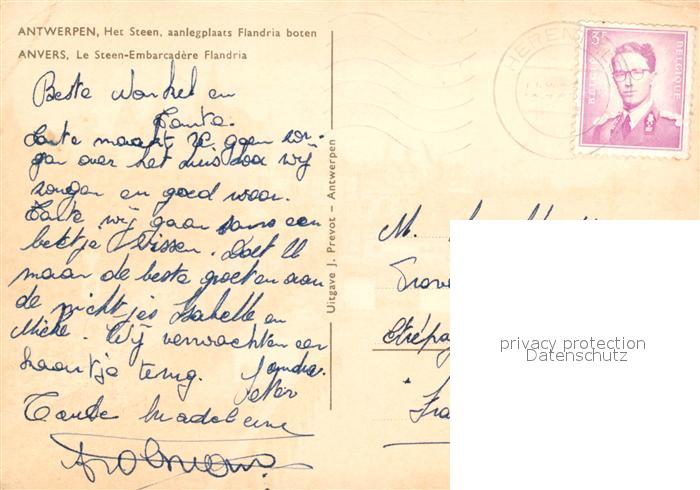 ANTWERPEN, Het Steen, aanlegplaats Flandria boten
ANVERS, Le Steen-Embarcadère Flandria
Beste Nonkel en
Tante.
Tante maakt U geen zor-
gen over het huis daar wij
zorgen en goed voor.
Tante wij gaan een
beetje vissen. Doet U
maar de beste groeten aan
de nichtjes Isabelle en
Wij verwachten een
kaartje terug.
Peter
Tante Madeleine
Uitgave J. Prevot - Antwerpen
HEREN
3F
BELGIE
BELGIQUE
M.
Etrépag
privacy protection
Datenschutz